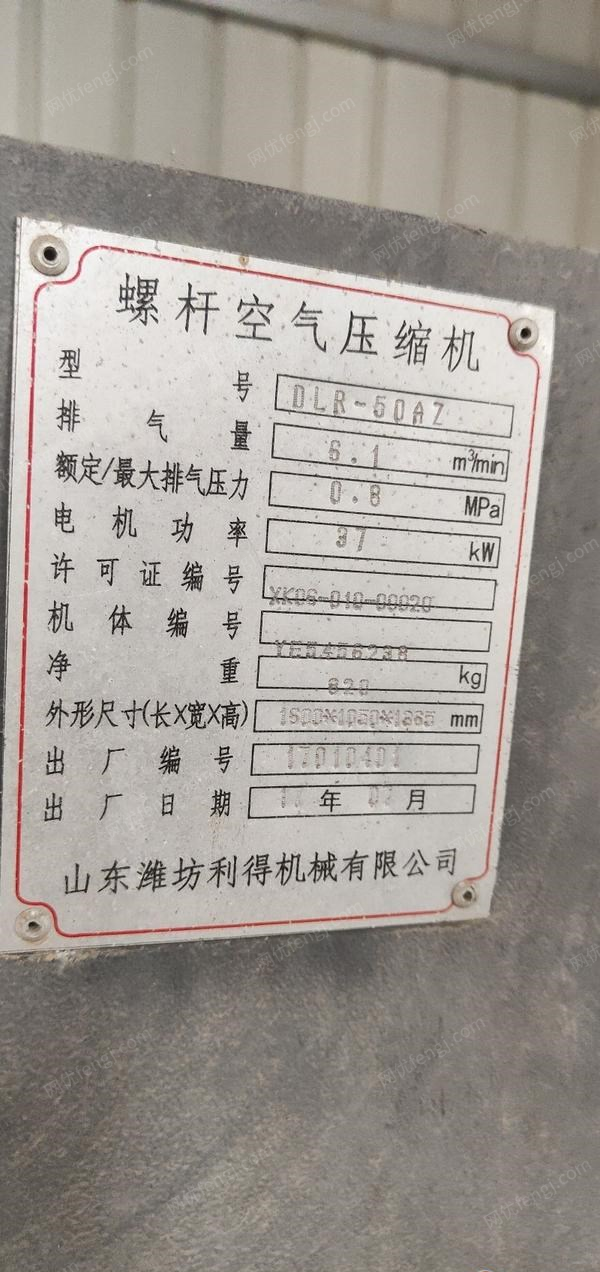 螺杆空气压缩机
型号 DLR-50AZ
排气量 6.1 m³/min
额定/最大排气压力 0.8 MPa
电机功率 37 kW
许可证编号 XK06-010-00020
机体编号 YE5456238
净重 820 kg
外形尺寸(长X宽X高) mm
出厂编号 17010401
出厂日期 年 月
山东潍坊利得机械有限公司
网优fengj.com